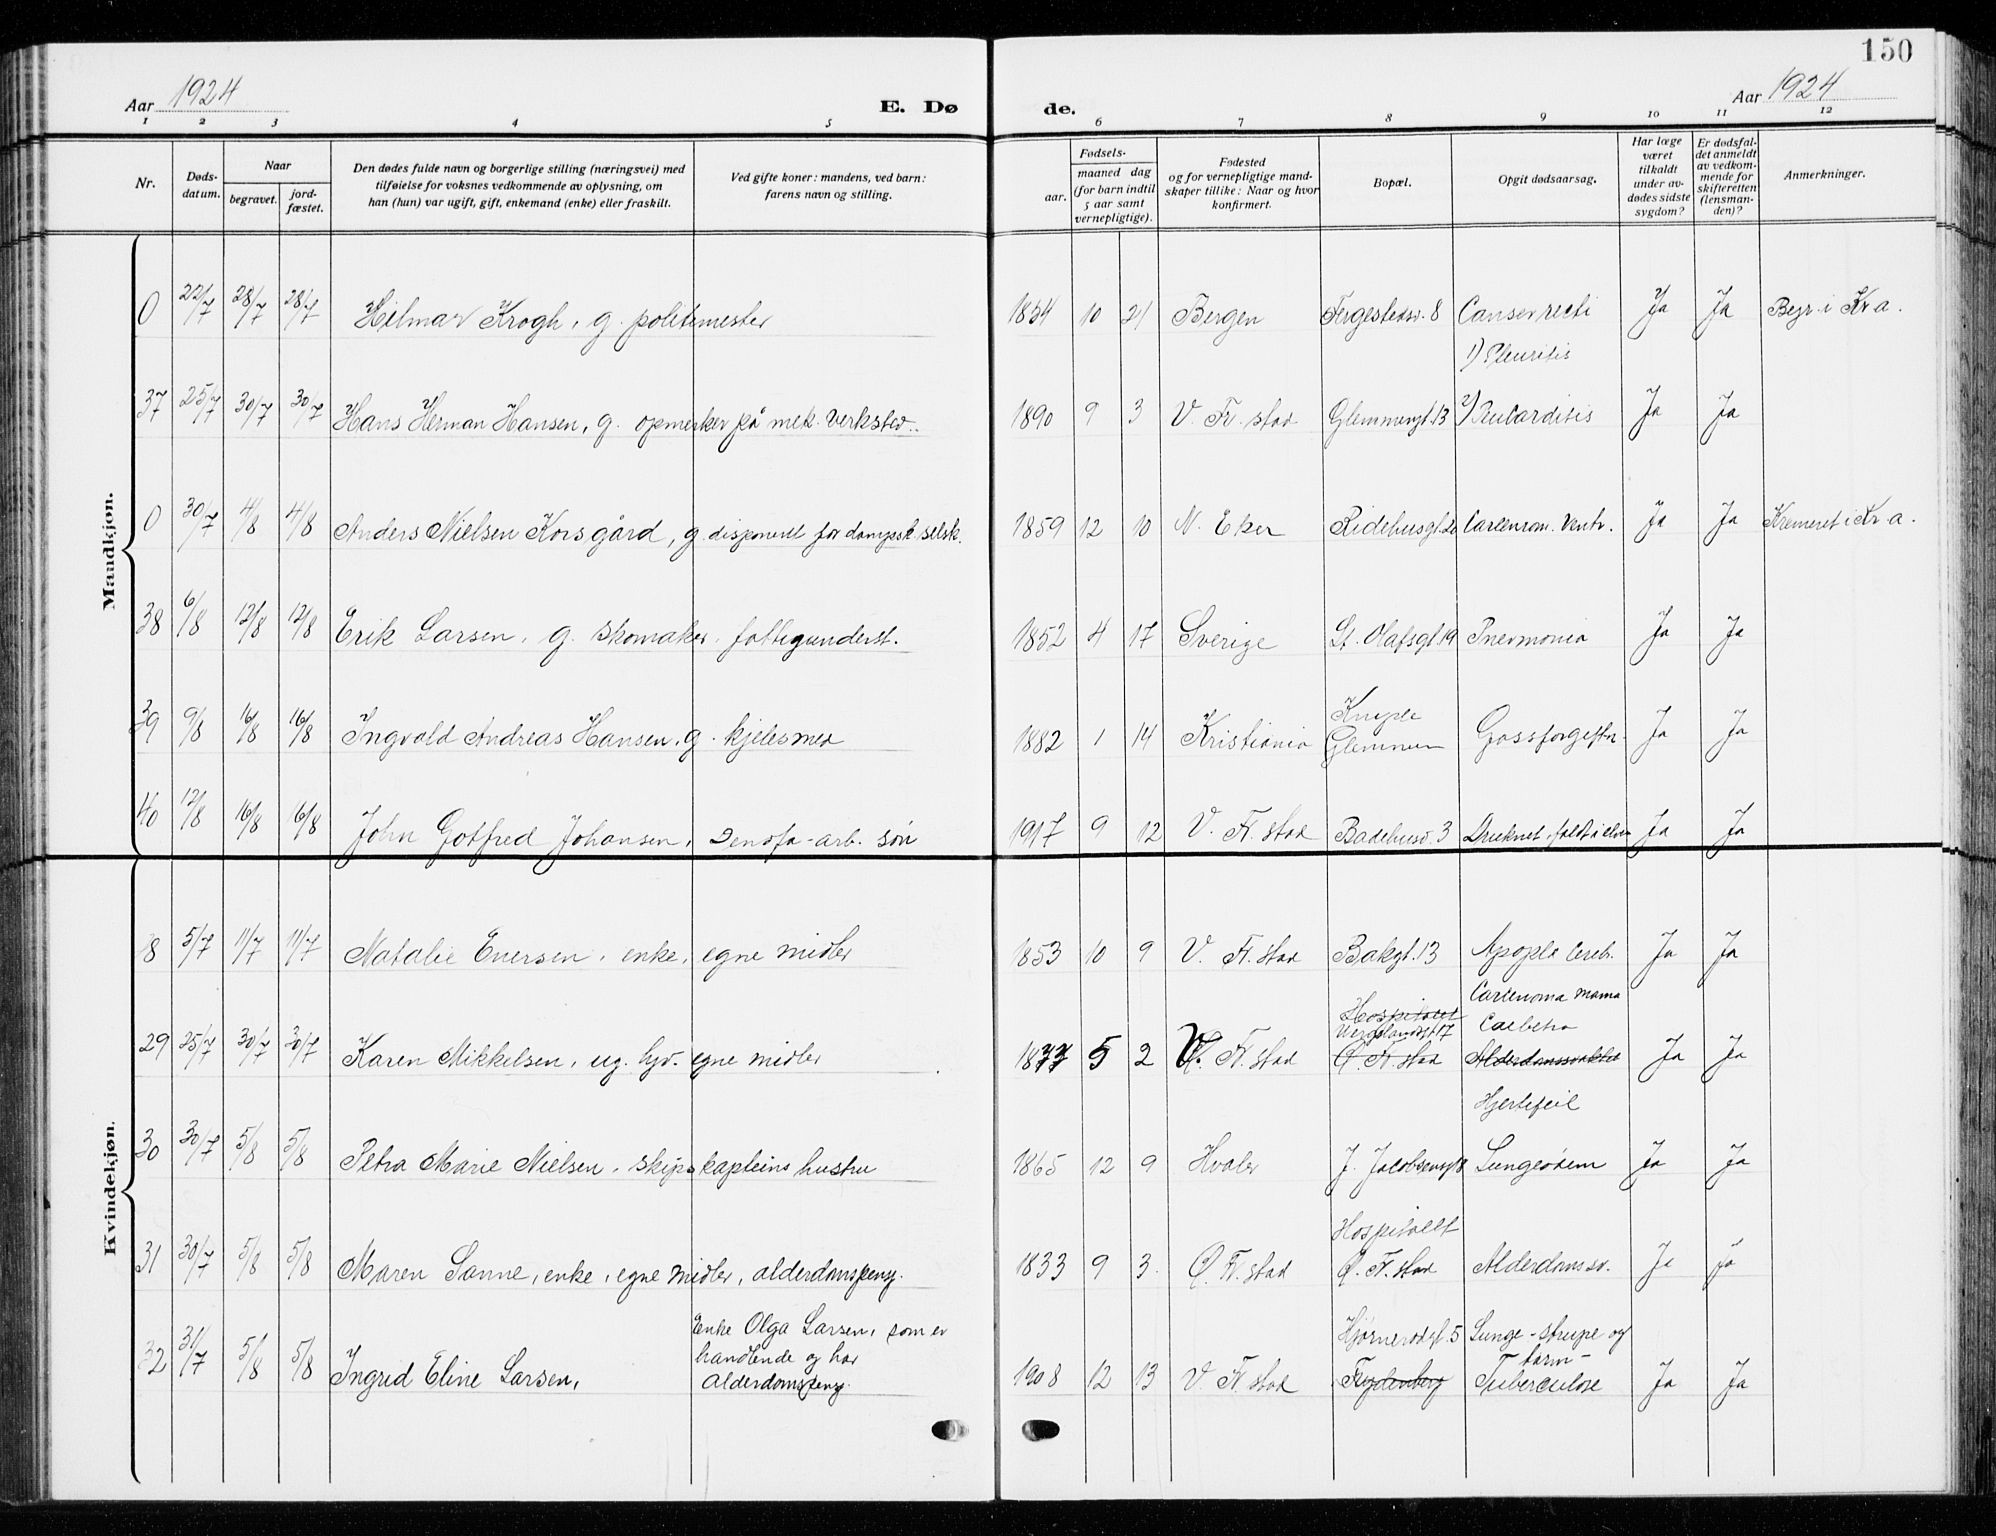 150
Aar 1924 E. Døde. Aar 1924
1 2 3 4 5 6 7 8 9 10 11 12
Nr.
Døds-
datum.
Naar
begravet.
jord-
fæstet.
Den dødes fulde navn og borgerlige stilling (næringsvei) med
tilføielse for voksnes vedkommende av oplysning, om
han (hun) var ugift, gift, enkemand (enke) eller fraskilt.
Ved gifte koner: mandens, ved barn:
farens navn og stilling.
Fødsels-
aar.
maaned dag
(for barn indtil
5 aar samt
vernepligtige).
Fødested
og for vernepligtige mand-
skaper tillike: Naar og hvor
konfirmert.
Bopæl.
Opgit dødsaarsag.
Har læge
været
tilkaldt
under av-
dødes sidste
sygdom?
Er dødsfal-
det anmeldt
av vedkom-
mende for
skifteretten
(lensman-
den)?
Anmerkninger.
Mandkjøn.
0 22/7 28/7 28/7 Hilmar Krogh, g. politimester 1854 10 21 Bergen Fergestedsv. 8 Cancer recti Ja Ja Begr. i Kr.a.
1) Pleuritis
37 25/7 30/7 30/7 Hans Herman Hansen, g. opmerker på mek. verksted. 1890 9 3 V. Fr.stad Glemmengt. 13 2) Ja Ja
0 30/7 4/8 4/8 Anders Nielsen Korsgård, g. disponent for dampsk. selsk. 1859 12 10 N. Eker Ridehusgt. Ventr. Ja Ja Kremeret i Kr.a.
38 6/8 12/8 12/8 Erik Larsen, g. skomaker, fattigunderst. 1852 4 17 Sverige St. Olafsgt. 19 Pnevmonia Ja Ja
Kniple
39 9/8 16/8 16/8 Ingvald Andreas Hansen, g. kjelesmed 1882 1 14 Kristiania Glemmen Gassforgiftn. Ja Ja
40 12/8 16/8 16/8 John Gotfred Johansen, Denofa-arb. søn 1917 9 12 V. Fr.stad Badehusv. 3 Druknet, faldt i elven Ja Ja
Kvindekjøn.
8 5/7 11/7 11/7 Natalie Enersen, enke, egne midler 1853 10 9 V. Fr.stad Bakgt. 13 Apople cerebr. Ja Ja
Hospitalet
Carcenoma mama
Wergelandsgt. 17
29 25/7 30/7 30/7 Karen Mikkelsen, ug. hjv. egne midler 1877 5 2 V. Fr.stad Ø. Fr.stad Alderdomssvakhet Ja Ja
Hjertefeil
30 30/7 5/8 5/8 Petra Marie Nielsen, skipskapteins hustru 1865 12 9 Hvaler J. Jacobsensgt. 8 Lungeødem Ja Ja
Hospitalet
31 30/7 5/8 5/8 Maren Sanne, enke, egne midler, alderdomspeng. 1833 9 3 Ø. Fr.stad Ø. Fr.stad Alderdomssv. Ja Ja
Enke Olga Larsen, som er
handlende og har
alderdomspeng.
Hjørnerødgt. 5 Lunge-strupe og
tarm-
32 31/7 5/8 5/8 Ingrid Eline Larsen, 1908 12 13 V. Fr.stad Frydenberg Tuberculose Ja Ja